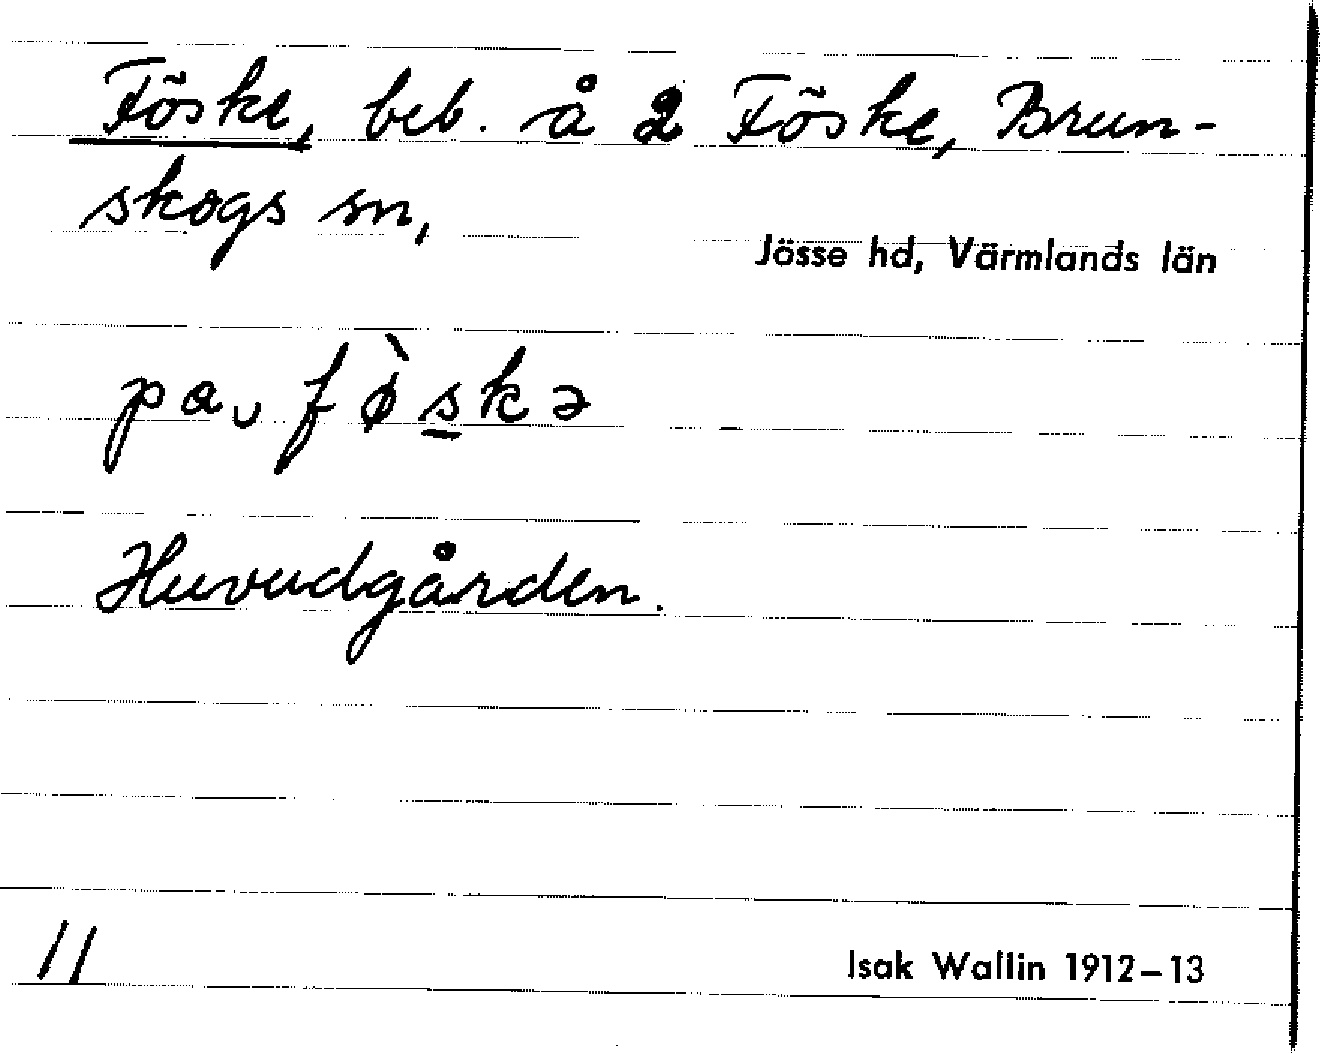 Föske, beb. å 2 Föske, Brun-
skogs sn,
Jösse hd, Värmlands län
pa ̮ fø̀s̲kə
Huvudgården.
11
Isak Wallin 1912–13